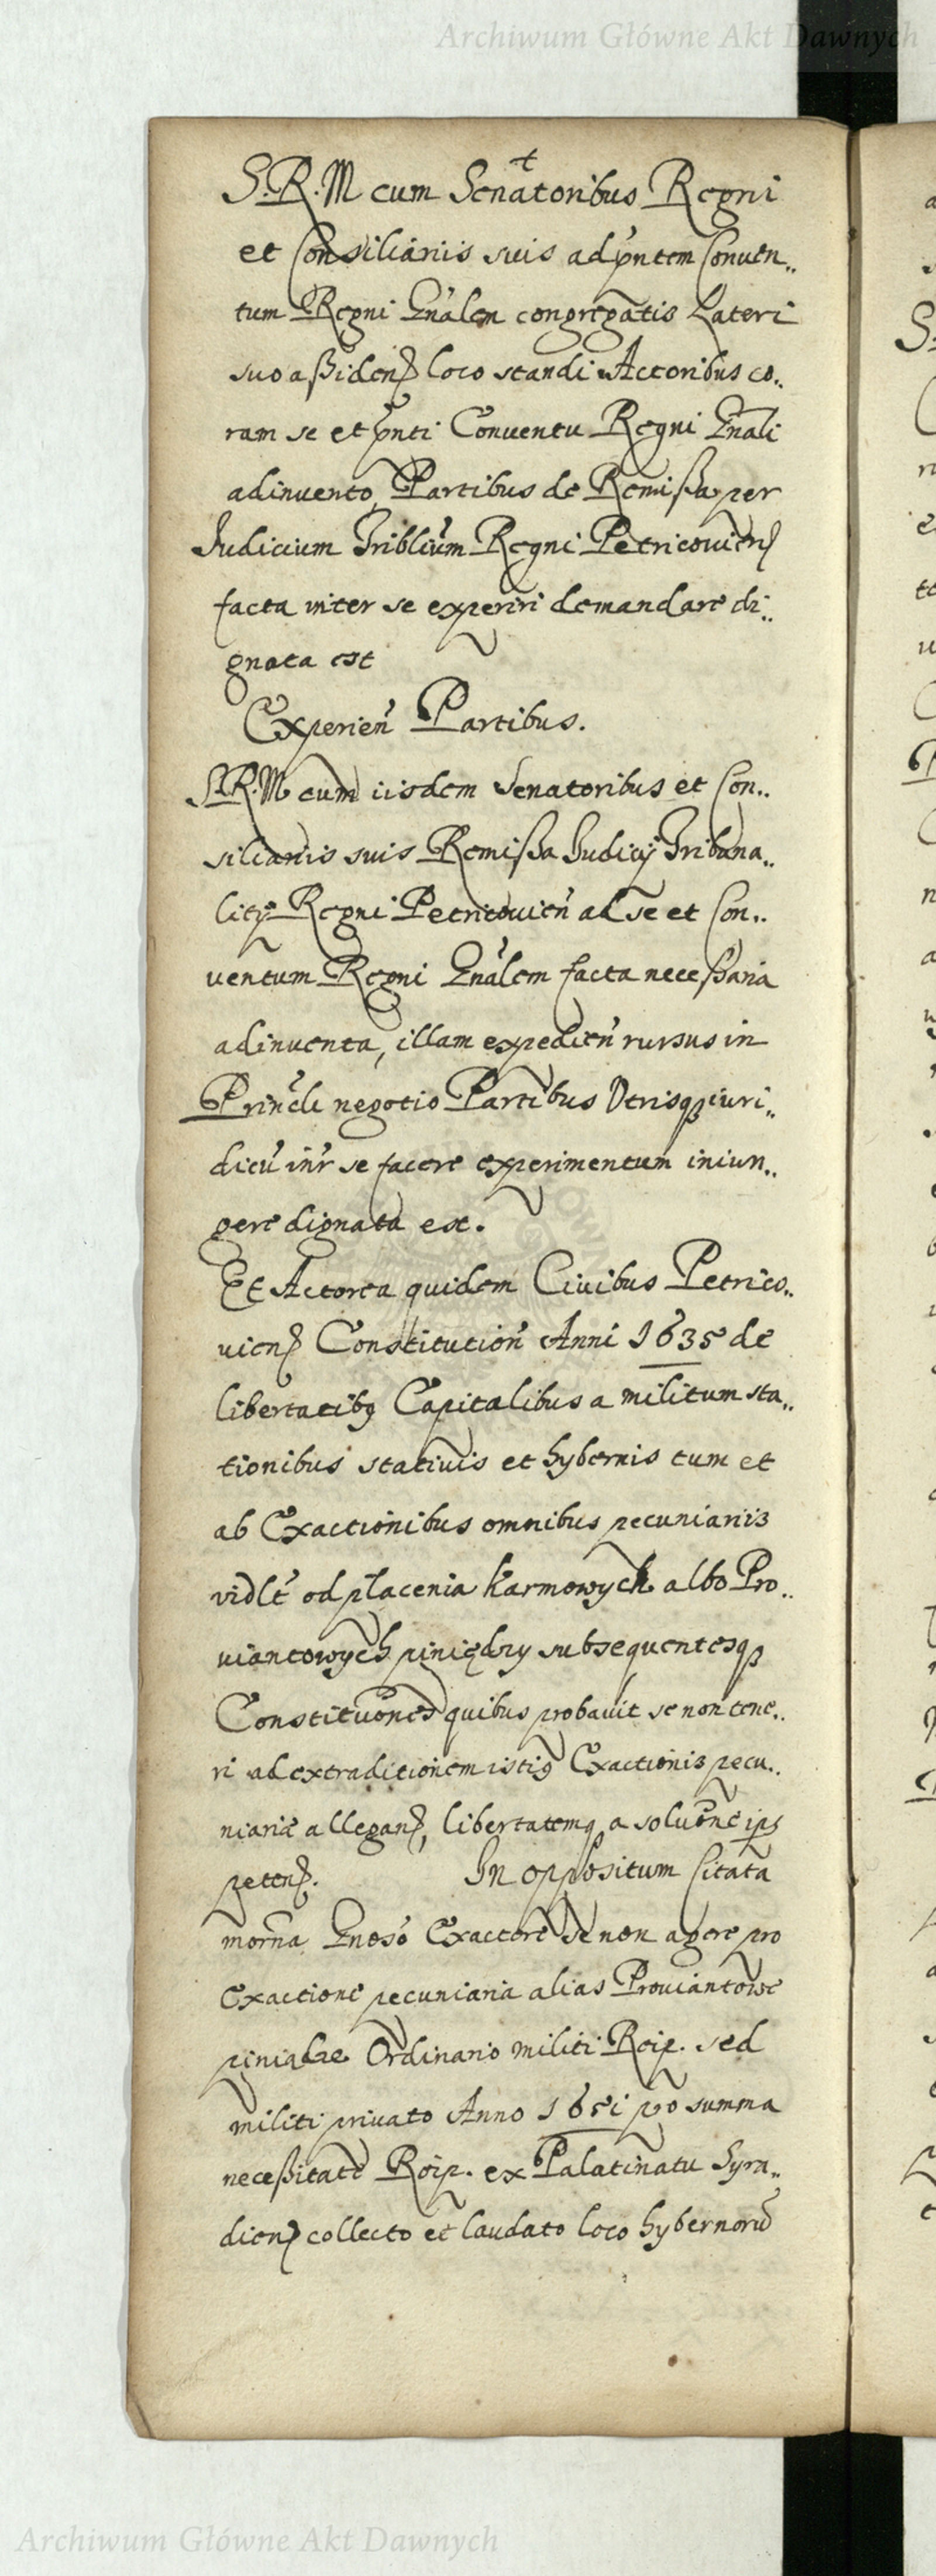 Archiwum Główne Akt Dawnych
S.R.M cum Senatoribus Regni
et Consiliariis suis ad pntem Conven..
tum Regni Gnalem congregatis Lateri
suo aßiden loco standi Actoribus co..
ram se et pnti Conventu Regni Gnali
adinvento, Partibus de Remißa per
Judicium Triblium Regni Petricovien
facta inter se experiri demandare di..
gnata est
Experien Partibus.
S.R.M cum iisdem Senatoribus et Con..
siliariis suis Remißa Judicij Tribuna..
litij Regni Petricovien ad se et Con..
ventum Regni Gnalem facta neceßaria
adinventa, illam expedien rursus in
Princli negotio Partibus Utrisq iuri..
dicu inr se facere experimentum iniun..
gere dignata est.
Et Actorea quidem Civibus Petrico..
vien Constitution Anni 1635 de
libertatibq Capitalibus a militum sta..
tionibus stativis et hybernis tum et
ab Exactionibus omnibus pecuniariis
vidlt od płacenia karmowych albo Pro..
viantowych piniędzy subsequentesq
Constituones quibus probavit se non tene..
ri ad extraditionem istiq Exactionis pecu..
niariae allegan, libertatemq a soluone ips
peten. In oppositum Citata
morna Gnoso Exactore se non agere pro
exactione pecuniaria alias Proviantowe
piniądze Ordinario militi Reip. sed
militi privato Anno 1651 pro summa
neceßitate Reip. ex Palatinatu Syra..
dien collecto et laudato loco hybernoru
Archiwum Główne Akt Dawnych